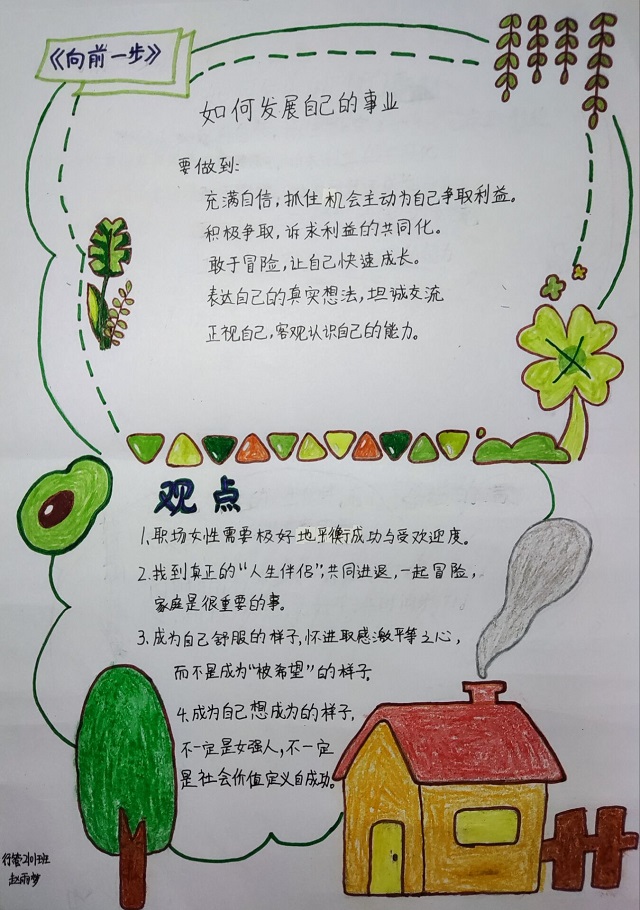 《向前一步》
如何发展自己的事业
要做到:
充满自信,抓住机会主动为自己争取利益。
积极争取,诉求利益的共同化。
敢于冒险,让自己快速成长。
表达自己的真实想法,坦诚交流
正视自己,客观认识自己的能力。
观点
1.职场女性需要极好地平衡成功与受欢迎度。
2.找到真正的“人生伴侣”,共同进退,一起冒险,
家庭是很重要的事。
3.成为自己舒服的样子,怀进取感激平等之心,
而不是成为“被希望”的样子.
4.成为自己想成为的样子,
不一定是女强人,不一定
是社会价值定义的成功。
行管2101班
赵雨梦